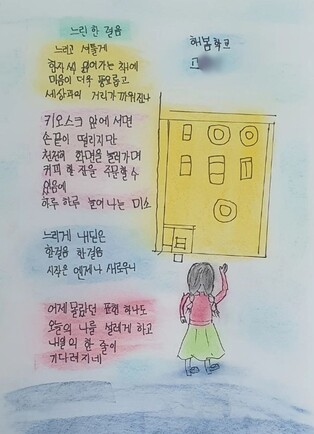 느린 한 걸음
해봄학교
느리고 서툴게
한자씩 읽어가는 책에
마음이 더욱 풍요롭고
세상과의 거리가 까워진다
키오스크 앞에 서면
손끝이 떨리지만
천천히 화면을 눌러가며
커피 한 잔을 주문할 수
있음에
하루 하루 늘어나는 미소
느리게 내딛은
한걸음 한걸음
시작은 언제나 새로우니
어제 몰랐던 표현 하나도
오늘의 나를 설레게 하고
내일의 한 줄이
기다려지네